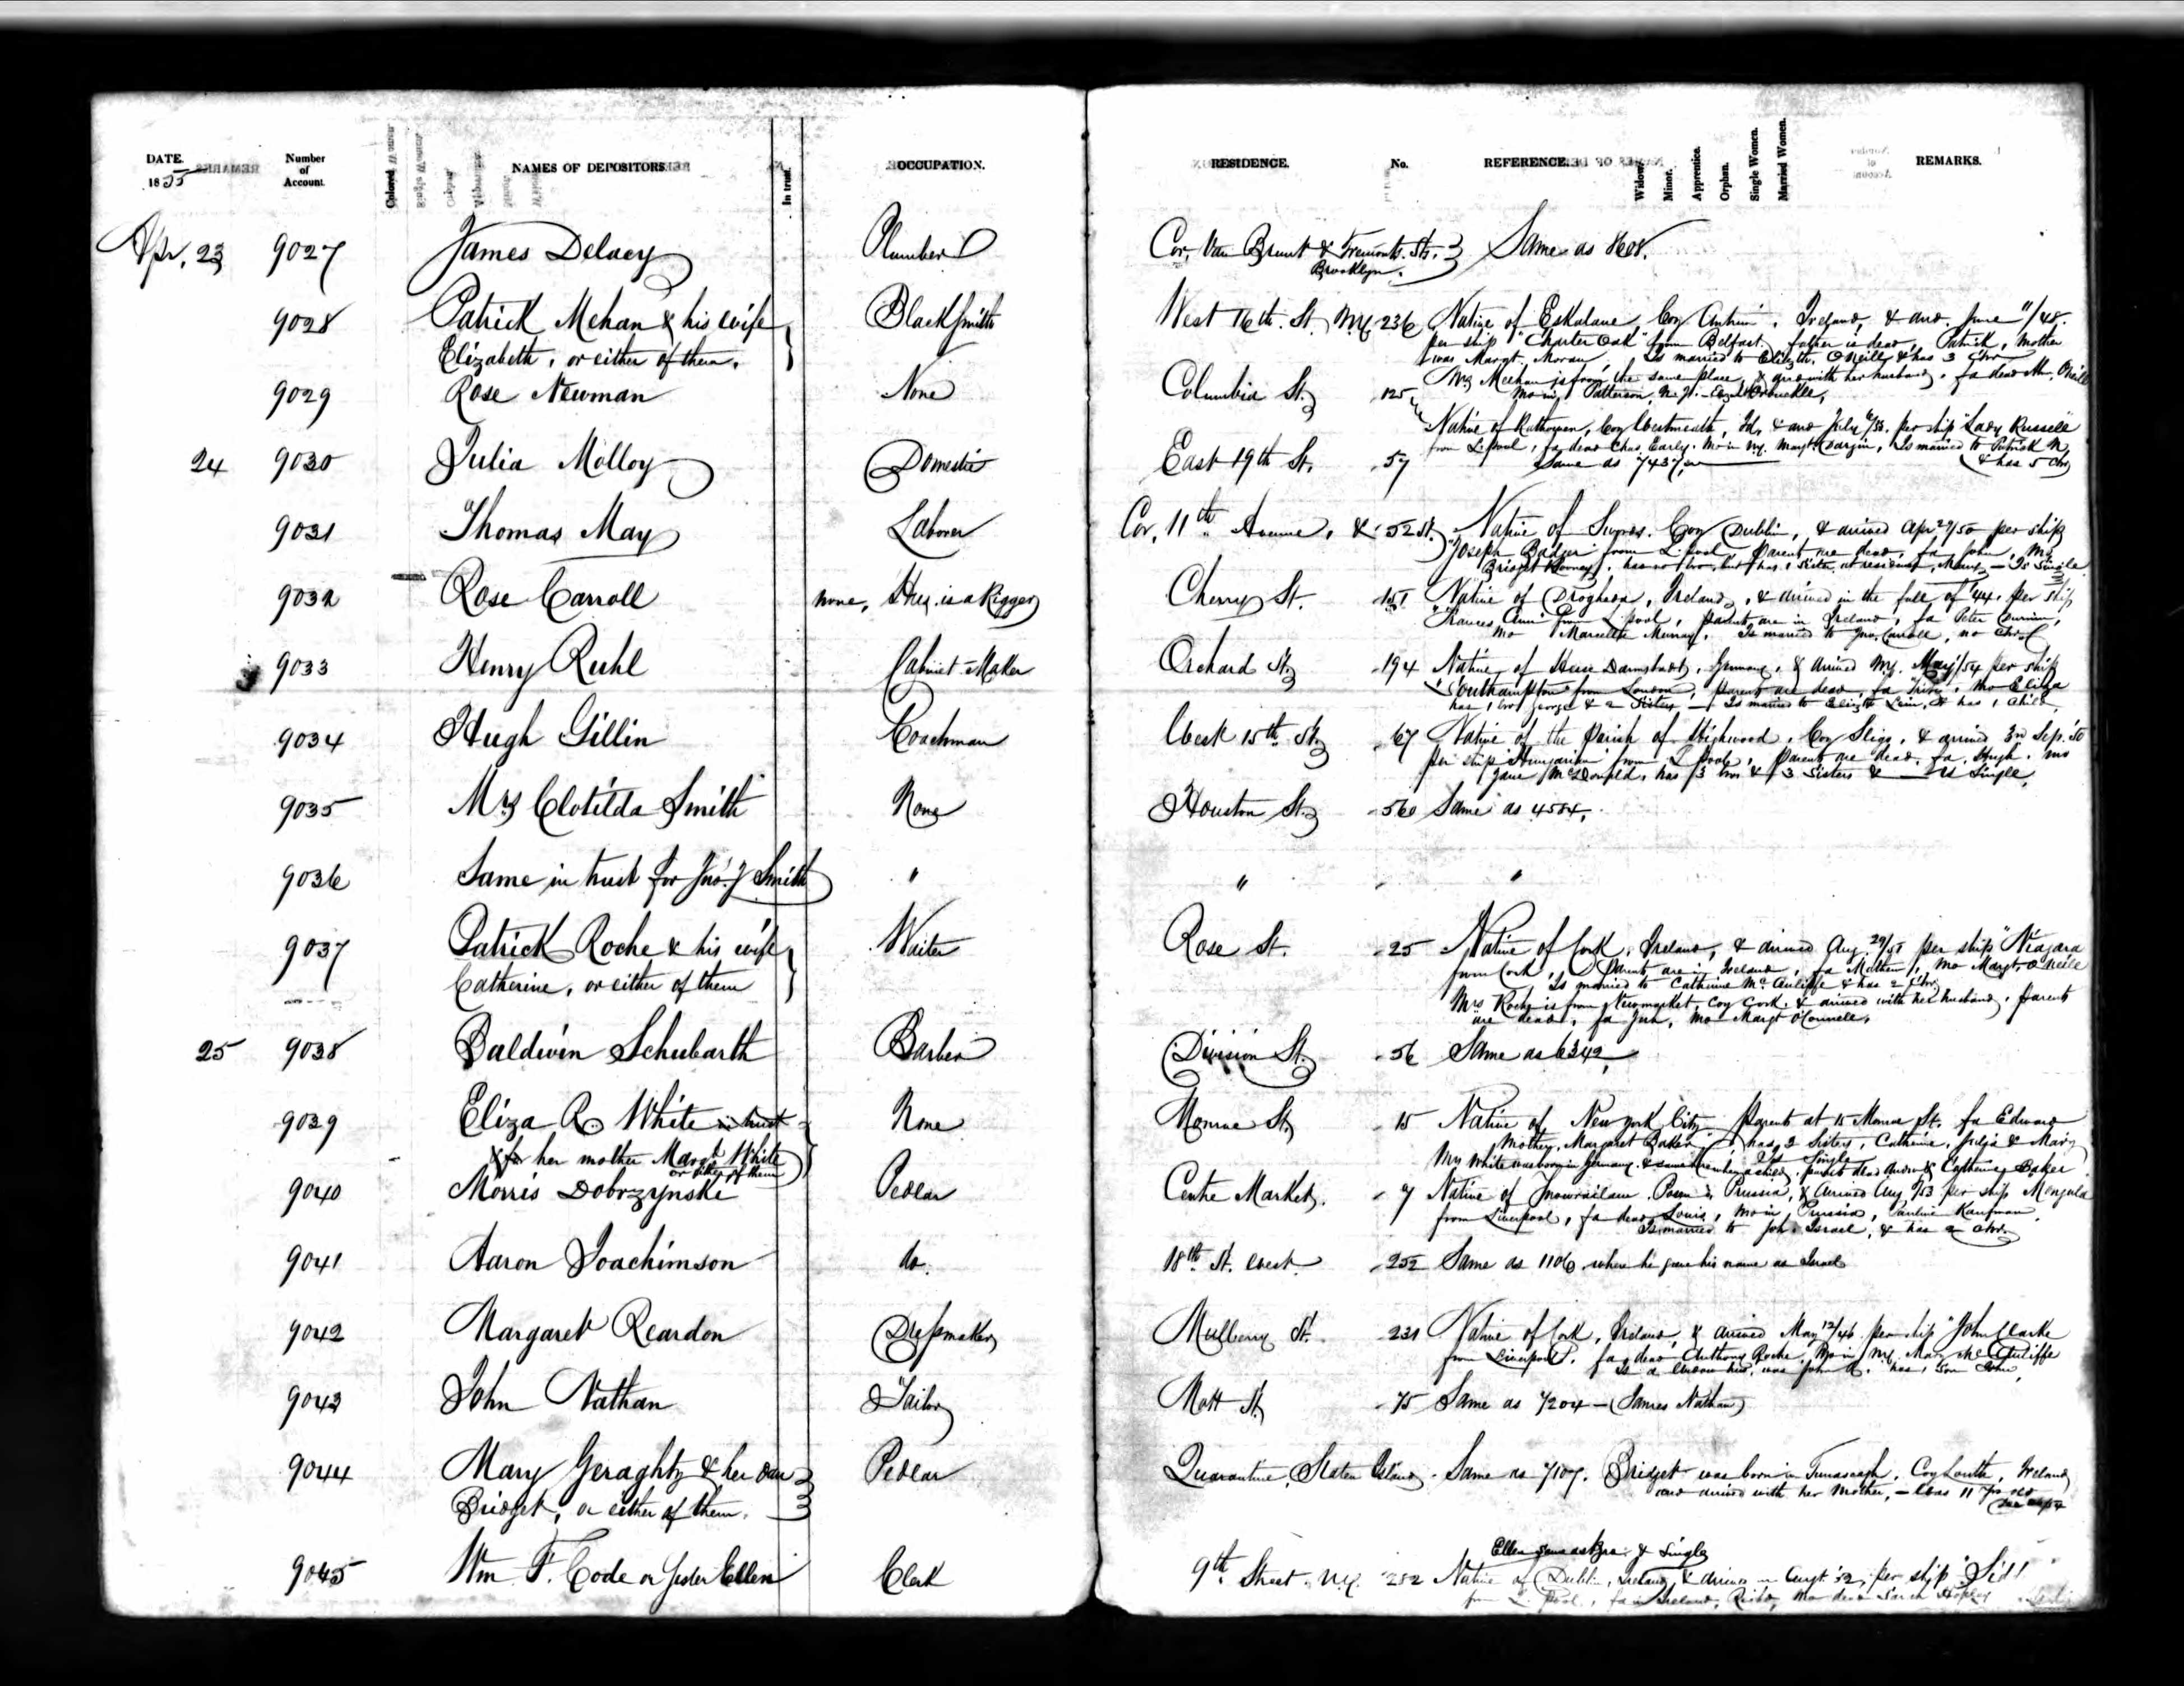 DATE. 1855
Number of Account.
Colored
NAMES OF DEPOSITORS
In trust.
OCCUPATION.
RESIDENCE.
No.
REFERENCE.
Widow.
Minor.
Apprentice.
Orphan.
Single Women.
Married Women.
REMARKS.
Apr. 23 9027 James Delacy Plumber Cor. Van Brunt & Tremont Sts. Same as 8608.
Brooklyn.
9028 Patrick Mehan & his wife Blacksmith West 16th St. N.Y. 236 Native of Coy Antrim, Ireland, & arr. June 11/48.
Elizabeth, or either of them.
per ship "Charter Oak" from Belfast. father is dead, Patrick, Mother
was Margt. Moran. Is married to Elizth. O'Neill & has 3 Chn
Mrs Meehan is from the same place, & arr with her husband. fa dead
mo in Patterson, N.J.
9029 Rose Newman None Columbia St. 125
Native of Coy Westmeath, Id, & arr July 6/53. per ship "Lady Russell"
from L.pool, fa dead Chas. Early. Mo in N.Y. Margt. Is married to Patrick N,
& has 5 Chn
24 9030 Julia Molloy Domestic East 19th St. 57 Same as 7437
9031 Thomas May Laborer Cor. 11th Avenue, & 52 St. Native of Coy Dublin, & arrived Apr 29/50 per ship
"Joseph Badger" from L.pool Parents are dead, fa John, Mo
Bridget has no bro, but has 1 Sister, at residence, Mary, — Is Single
9032 Rose Carroll none, Hus. is a Rigger Cherry St. 151 Native of Drogheda, Ireland, & arrived in the fall of '44. per ship
"Frances Ann" from L.pool, parents are in Ireland, fa Peter
Mo Marcella Murray. Is married to Jno. Carroll, no Chn
9033 Henry Ruhl Cabinet-Maker Orchard St. 194 Native of Hesse Darmstadt, Germany, & arrived N.Y. May /54 per ship
"Southampton" from London, parents are dead, fa mo Eliza
has 1 bro George & 2 Sisters — Is married to Elizth & has 1 child
9034 Hugh Gillin Coachman West 15th St. 67 Native of the Parish of Highwood, Coy Sligo, & arrived 3rd Sep. '50
per ship Hungarian from L.pool, Parents are dead, fa. Hugh. mo
Jane McDonald, has 3 bros & 3 Sisters & — is Single,
9035 Mrs Clotilda Smith None Houston St. 560 Same as 4584.
9036 Same in trust for Jno. J Smith " " "
9037 Patrick Roche & his wife Waiter Rose St. 25 Native of Cork, Ireland, & arrived Aug. 29/51 per ship "Niagara
Catherine, or either of them
from Cork, Parents are in Ireland, fa Mathew, mo Margt. O'Neile
Is married to Catherine McAuliffe & has 2 Chn
Mrs Roche is from Newmarket, Coy Cork, & arrived with her husband. Parents
are dead, fa Jno, mo Margt O'Connell.
25 9038 Baldwin Schubarth Barber Division St. 56 Same as 6342
9039 Eliza R. White in trust None Monroe St. 15 Native of New York City Parents at 15 Monroe St. fa Edward
for her mother Margt White
or either of them
Mother, Margaret Baker has 3 Sisters, Catherine, Julia & Mary
Is Single
Mrs White was born in Germany & came here when a child, parents dead Andw & Catherine Baker
9040 Morris Dobrzynski Pedlar Centre Market. 7 Native of Posen, Prussia, & arrived Aug 9/53 per ship Mongula
from Liverpool, fa dead Louis, Mo in Prussia, Pauline Kaufman.
Is married to Joh. Israel, & has 2 Chn.
9041 Aaron Joachimson do. 18th St. West 252 Same as 1106 where he gave his name as Israel
9042 Margaret Reardon Dressmaker Mulberry St. 231 Native of Cork, Ireland, & arrived May 12/46 per ship "John Clarke
from Liverpool, fa dead Anthony Roche, Mo in N.Y. Mary McAuliffe
Is a Widow hus. was John R. has 1 Son John,
9043 John Nathan Tailor Mott St. 75 Same as 7204 — (James Nathan)
9044 Mary Geraghty & her dau Pedlar Quarantine, Staten Island. Same as 7107. Bridget was born in Coy Louth, Ireland
Bridget, or either of them.
and arrived with her Mother, — was 11 yrs old
9045 Wm F. Code or sister Ellen Clerk 9th Street. N.Y. 282 Native of Dublin, Ireland, & arrived in Augt. '52, per ship
Ellen same as & Single
from L.pool, fa in Ireland, mo dead Sarah